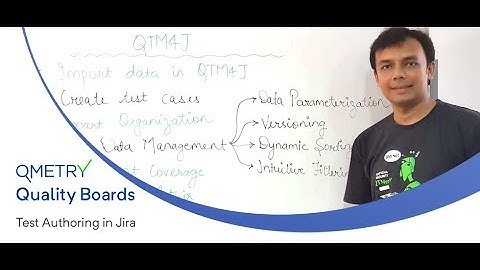 QTM4J
Import data in QTM4J
Create test cases
Organization
Data Management
Data Parameterization
Versioning
Dynamic
Intuitive
Coverage
QMETRY
Quality Boards
Test Authoring in Jira